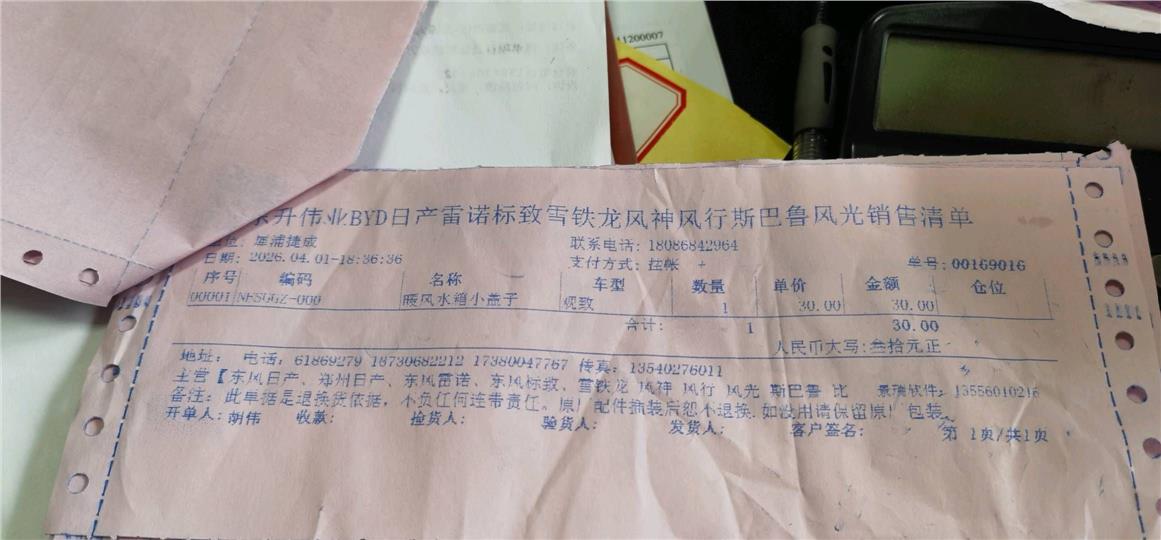 11200007
升伟业BYD日产雷诺标致雪铁龙风神风行斯巴鲁风光销售清单
单位: 犀浦捷成 联系电话: 18086842964
日期: 2026.04.01-18:36:36 支付方式: 挂帐 单号: 00169016
序号 编码 名称 车型 数量 单价 金额 仓位
00001 暖风水箱小盖子 1 30.00 30.00
合计: 1 30.00
人民币大写:叁拾元正
地址: 电话: 61869279 18730682212 17380047767 传真: 13540276011
主营【东风日产、郑州日产、东风雷诺、东风标致、雪铁龙 风神 风行 风光 斯巴鲁 比 景瑞软件: 13556010216
备注: 此单据是退换货依据, 不负任何连带责任。原厂配件拆装后恕不退换.如没用请保留原厂包装
开单人: 胡伟 收款: 捡货人: 验货人: 发货人: 客户签名: 第 1页/共1页